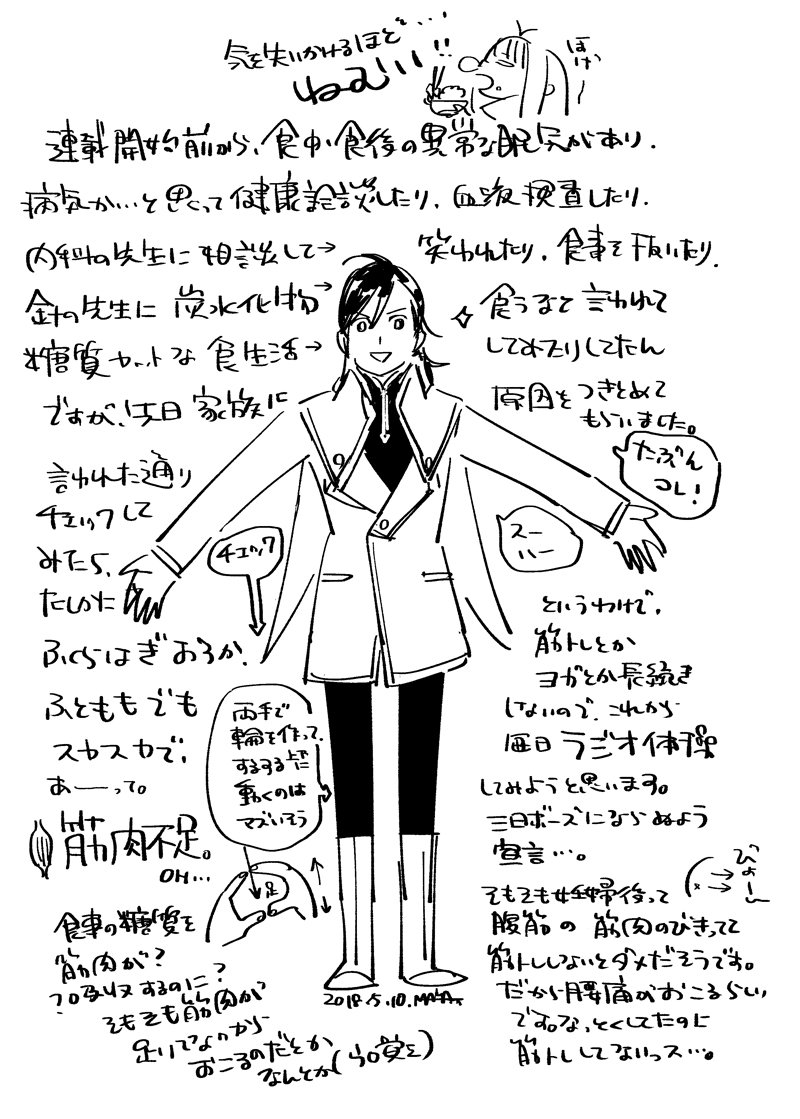 気を失いかけるほど…
ねーむいい!!
ほけ〜
連載開始前から、食中・食後の異常な眠気があり、
病気か…と思って健康診談したり、血液検査したり、
内科の先生に相談して→
笑われたり、食事を抜いたり、
針の先生に炭水化物→
食うなと言われて
糖質カットな食生活→
してみたりしてたん
ですが、先日家族に
原因をつきとめて
もらいました。
たぶん
コレ!
言われた通り
チェックして
みたら、
たしかに
ふくらはぎおろか、
ふとももでも
スカスカで、
あーーって。
筋肉不足。
OH…
チェック
スー
ハー
両手で
輪を作って、
するする上下に
動くのは
マズいそう
足
食事の糖質を
筋肉が?
吸収するのに?
そもそも筋肉が
足りてないから
おこるのだとか
なんとか
というわけで、
筋トレとか
ヨガとか長続き
しないので、これから
毎日ラジオ体操
してみようと思います。
三日ボーズにならぬよう
宣言…。
びょーん
そもそも妊婦後って
腹筋の筋肉のびきってて
筋トレしないとダメだそうです。
だから腰痛がおこるらしい
です。なっとくしてたのに
筋トレしてないっス…。
2018.5.10.